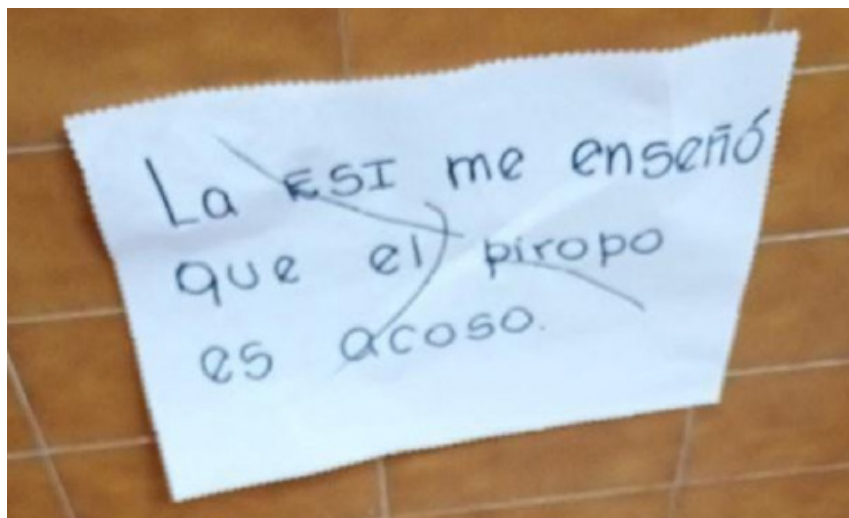 La ESI me enseñó
que el piropo
es acoso.